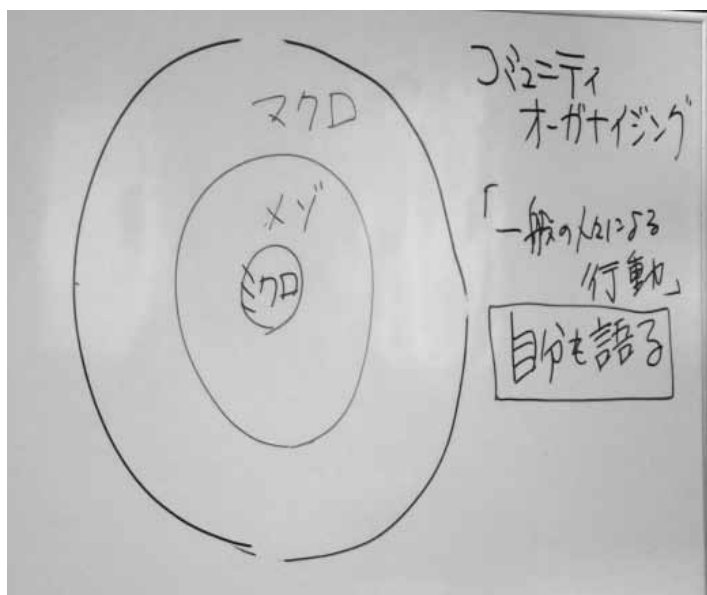 マクロ
メゾ
ミクロ
コミュニティ
オーガナイジング
「一般の人々による
行動」
自分も語る